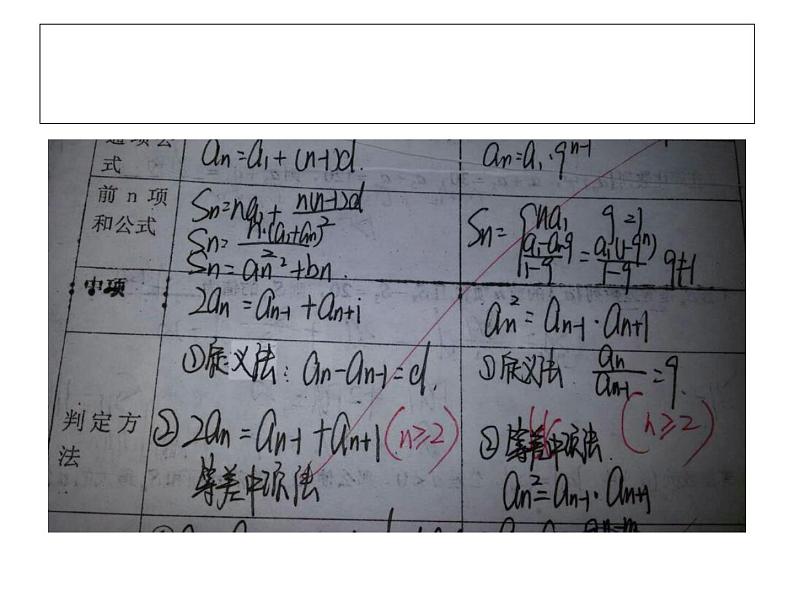 通项公式
aₙ=a₁+(n-1)d.
aₙ=a₁·qⁿ⁻¹
前 n 项和公式
Sₙ=na₁+n(n-1)d/2
Sₙ=n·(a₁+aₙ)/2
Sₙ=an²+bn.
Sₙ={na₁ q=1
(a₁-aₙq)/(1-q)=a₁(1-qⁿ)/(1-q) q≠1
中项
2aₙ=aₙ₋₁+aₙ₊₁
aₙ²=aₙ₋₁·aₙ₊₁
判定方法
①定义法:aₙ-aₙ₋₁=d.
②2aₙ=aₙ₋₁+aₙ₊₁(n≥2)
等差中项法
①定义法 aₙ/aₙ₋₁=q.
(n≥2)
②等差中项法.
aₙ²=aₙ₋₁·aₙ₊₁